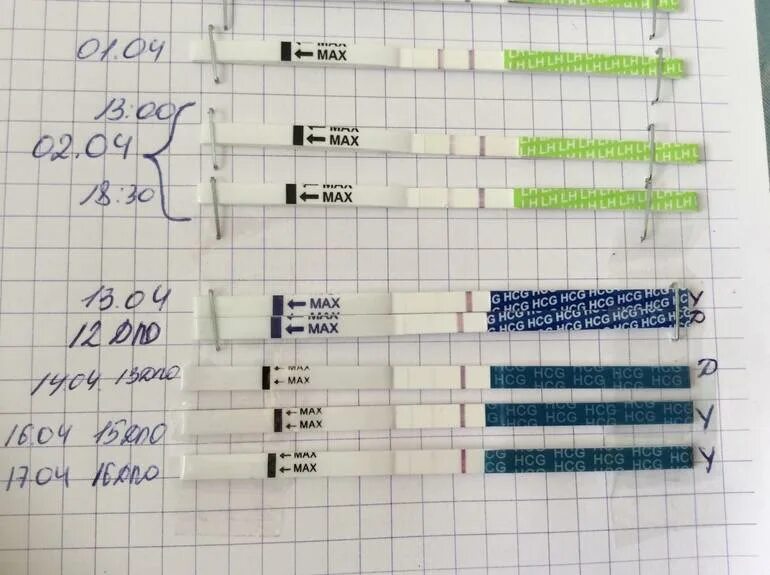 01.04 MAX ← MAX LH LH LH LH LH LH LH
13:00
02.04 MAX ← MAX LH LH LH LH LH LH LH LH
18:30 MAX ← MAX LH LH LH LH LH LH LH LH
13.04 ← MAX HCG HCG HCG HCG HCG HCG У
12 ДПО ← MAX HCG HCG HCG HCG HCG HCG
14.04 13дпо ← MAX ← MAX HCG HCG HCG HCG D
16.04 15ДПО ← MAX ← MAX HCG HCG HCG HCG У
17.04 16ДПО ← MAX ← MAX HCG HCG HCG HCG У